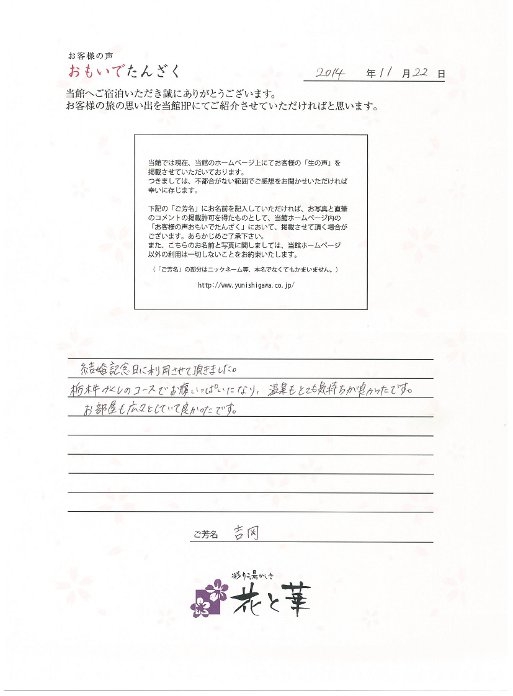 お客様の声
おもいでたんざく
2014 年 11 月 22 日
当館へご宿泊いただき誠にありがとうございます。
お客様の旅の思い出を当館HPにてご紹介させていただければと思います。
当館では現在、当館のホームページ上にてお客様の「生の声」を
掲載させていただいております。
つきましては、不都合がない範囲でご感想をお聞かせいただければ
幸いに存じます。
下記の「ご芳名」にお名前を記入していただければ、お写真と直筆
のコメントの掲載許可を得たものとして、当館ホームページ内の
「お客様の声おもいでたんざく」において、掲載させて頂く場合が
ございます。あらかじめご了承下さい。
また、こちらのお名前と写真に関しましては、当館ホームページ
以外の利用は一切しないことをお約束いたします。
(「ご芳名」の部分はニックネーム等、本名でなくてもかまいません。)
http://www.yunishigawa.co.jp/
結婚記念日に利用させて頂きました。
栃木づくしのコースでお腹いっぱいになり、温泉もとても気持ちが良かったです。
お部屋も広々としていて良かったです。
ご芳名 吉岡
花と華